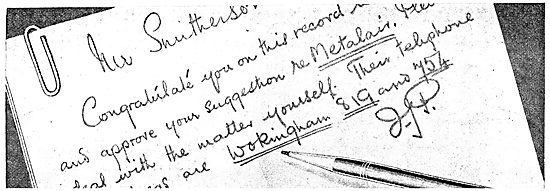 Mr Smitherson
Congratulate you on this record
and approve your suggestion re Metalair.
deal with the matter yourself. Their telephone
are Wokingham 819 and 754
J.P.